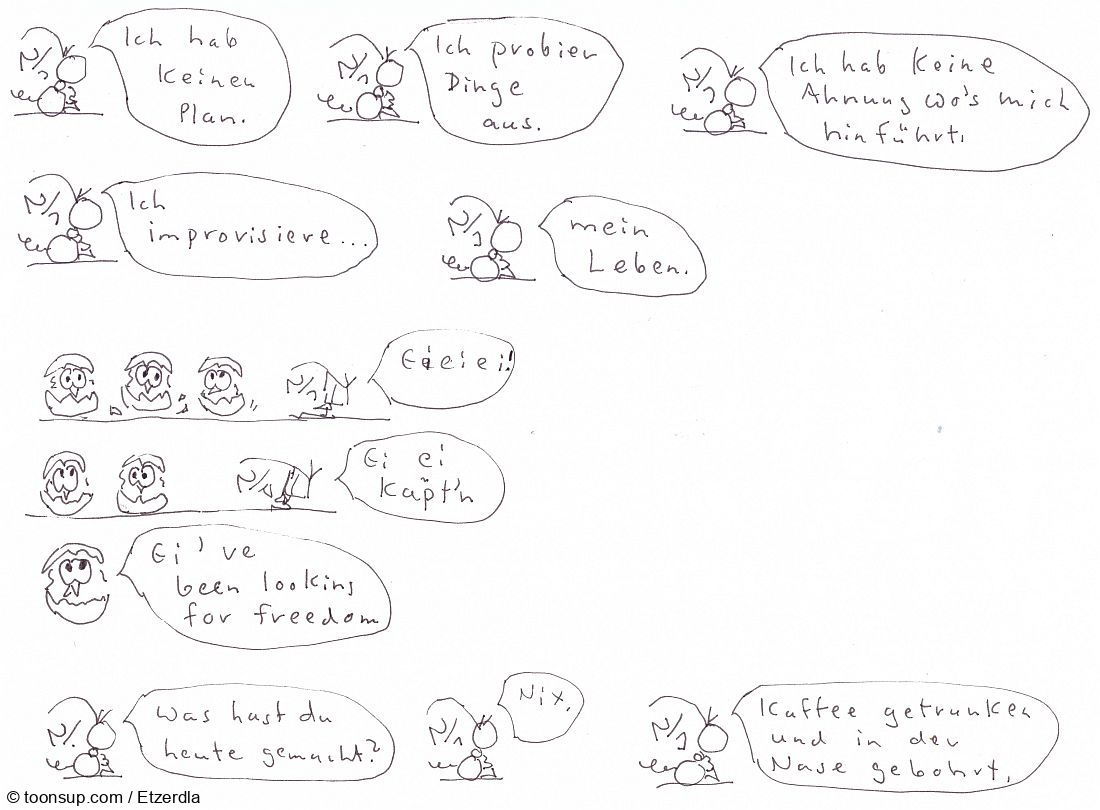 Ich hab
keinen
Plan.
Ich probier
Dinge
aus.
Ich hab keine
Ahnung wo's mich
hinführt.
Ich
improvisiere...
mein
Leben.
Eieiei!
Ei ei
Käpt'n
Ei've
been looking
for freedom
Was hast du
heute gemacht?
Nix.
Kaffee getrunken
und in der
Nase gebohrt.
© toonsup.com / Etzerdla